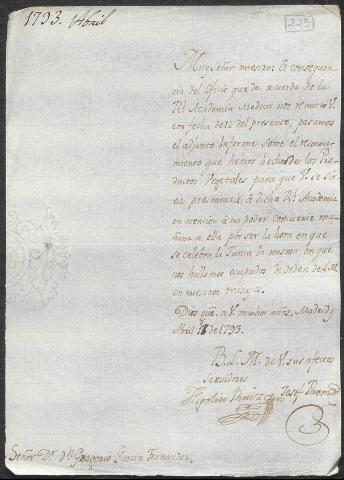 1793. Abril
225
Muy Señor nuestro: A consequen-
cia del Oficio que de acuerdo de la
Rl. Academia Medica nos remitió V.
con fecha de 12 del presente, pasamos
el adjunto Informe sobre el reconoci-
miento que hemos hecho de los Pro-
ductos Vegetales para que V. se sir-
va presentarle á dicha Rl. Academia
en atencion á no poder concurrir ma-
ñana a ella por ser la hora en que
se celebra la Junta la misma en que
nos hallamos ocupados de orden de S.M.
en nuestros trabajos.
Dios gue. a V. muchos años. Madrid y
Abril 18 de 1793.
B. L. M. de V. sus afectos
servidores
Hipolito Ruiz Josef Pavon
Señor Dr. Dn. Gregorio Garcia Fernandez.